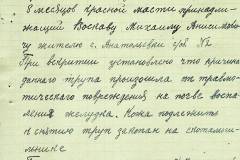 8 месяцев красной масти принадле-
жащий Воскаву Михаилу Анисимови-
чу жителю с. Анатольевки
При вскрытии установлено что причина
данного трупа произошла от травма-
тического повреждения на почве воспа-
ления желудка. Кожа подлежит
к снятию труп закопан на скотомогиль-
нике